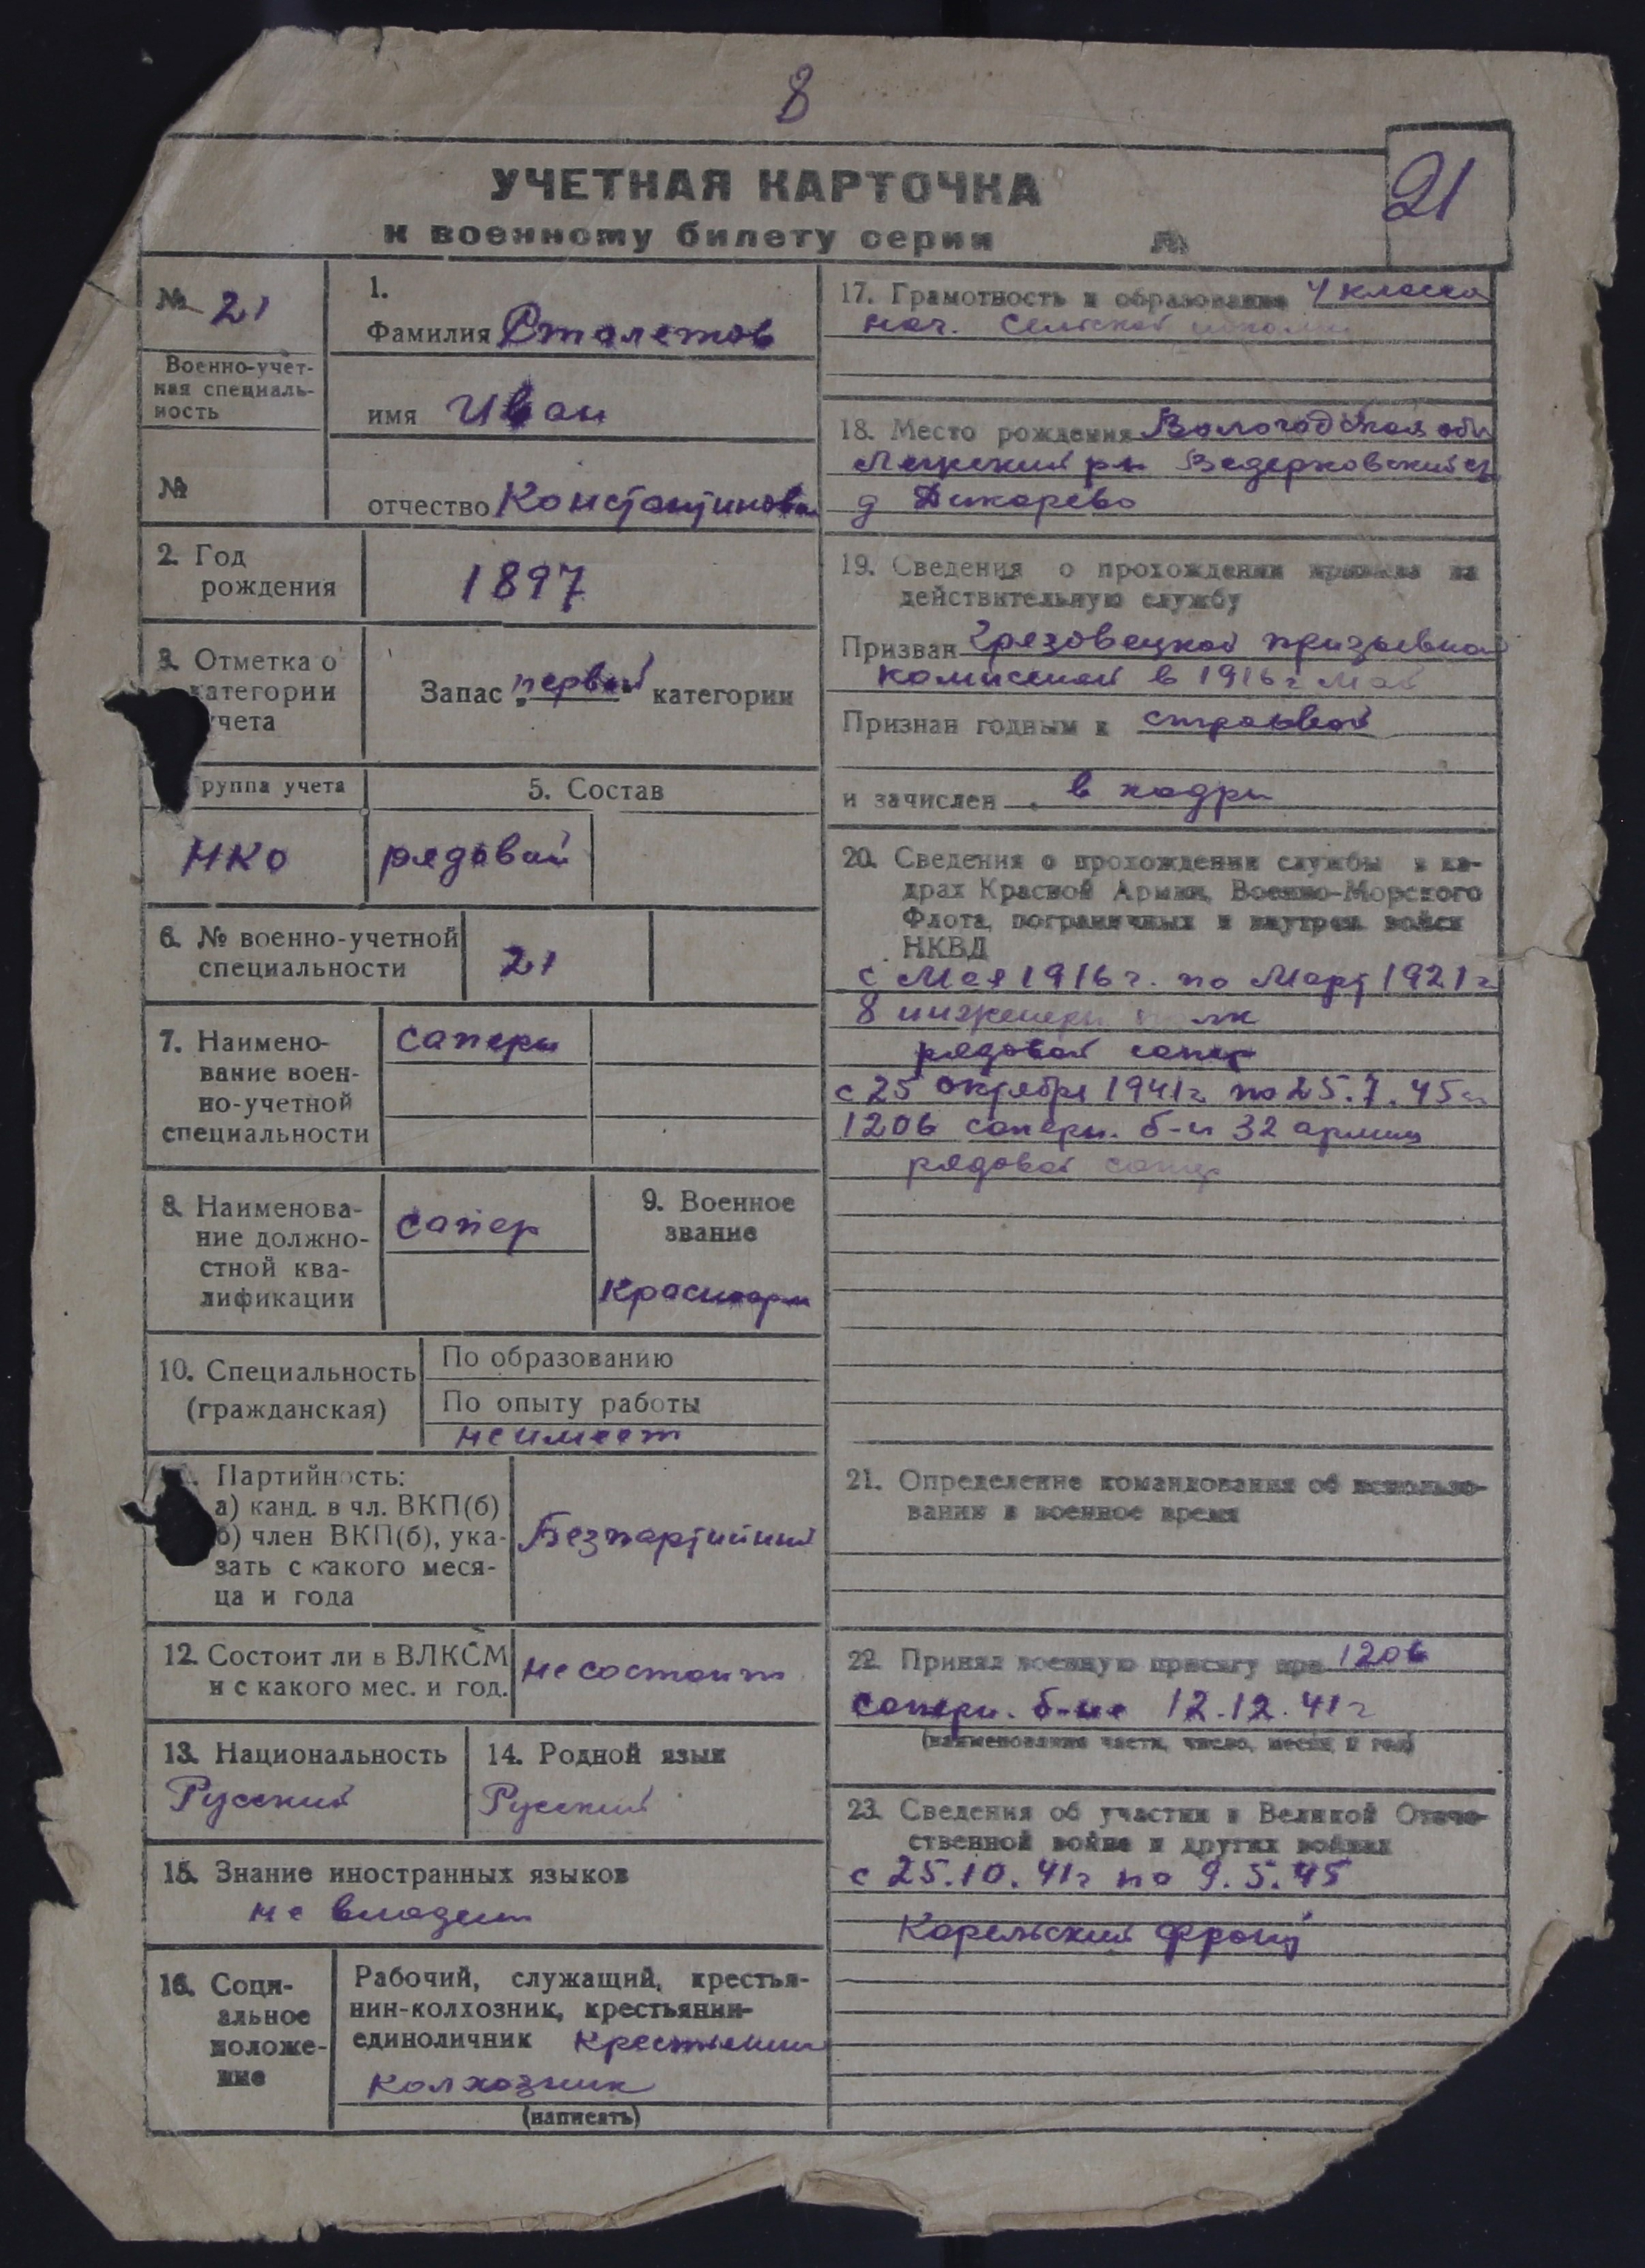 8
21
УЧЕТНАЯ КАРТОЧКА
к военному билету серии №
№ 21
Военно-учет-
ная специаль-
ность
№
1.
Фамилия Столетов
имя Иван
отчество Константинович
2. Год
рождения
1897
3. Отметка о
категории
учета
Запас первой категории
группа учета
НКО
5. Состав
рядовой
6. № военно-учетной
специальности
21
7. Наимено-
вание воен-
но-учетной
специальности
саперы
8. Наименова-
ние должно-
стной ква-
лификации
сапер
9. Военное
звание
Красноарм
10. Специальность
(гражданская)
По образованию
По опыту работы
не имеет
Партийность:
а) канд. в чл. ВКП(б)
б) член ВКП(б), ука-
зать с какого меся-
ца и года
Безпартийный
12. Состоит ли в ВЛКСМ
и с какого мес. и год.
не состоит
13. Национальность
Русский
14. Родной язык
Русский
15. Знание иностранных языков
не владеет
16. Соци-
альное
положе-
ние
Рабочий, служащий, крестья-
нин-колхозник, крестьянин-
единоличник крестьянин
колхозник
(написать)
17. Грамотность и образование 4 класса
нач. сельской школы
18. Место рождения Вологодская обл
р-н Ведерковский с/с
д Дикарево
19. Сведения о прохождении призыва на
действительную службу
Призван Грязовецкой призывной
комиссией в 1916 г май
Признан годным к строевой
и зачислен в кадры
20. Сведения о прохождении службы в ка-
драх Красной Армии, Военно-Морского
Флота, пограничных и внутрен. войск
НКВД
с Мая 1916 г. по Март 1921 г
8 инженерн полк
рядовой сапер
с 25 октября 1941 г. по 25.7.45 г
1206 саперн. б-н 32 армии
рядовой сапер
21. Определение командования об использо-
вании в военное время
22. Принял военную присягу при 1206
саперн. б-не 12.12.41 г
(наименование части, число, месяц и год)
23. Сведения об участии в Великой Отече-
ственной войне и других войнах
с 25.10.41 г по 9.5.45
Карельский фронт